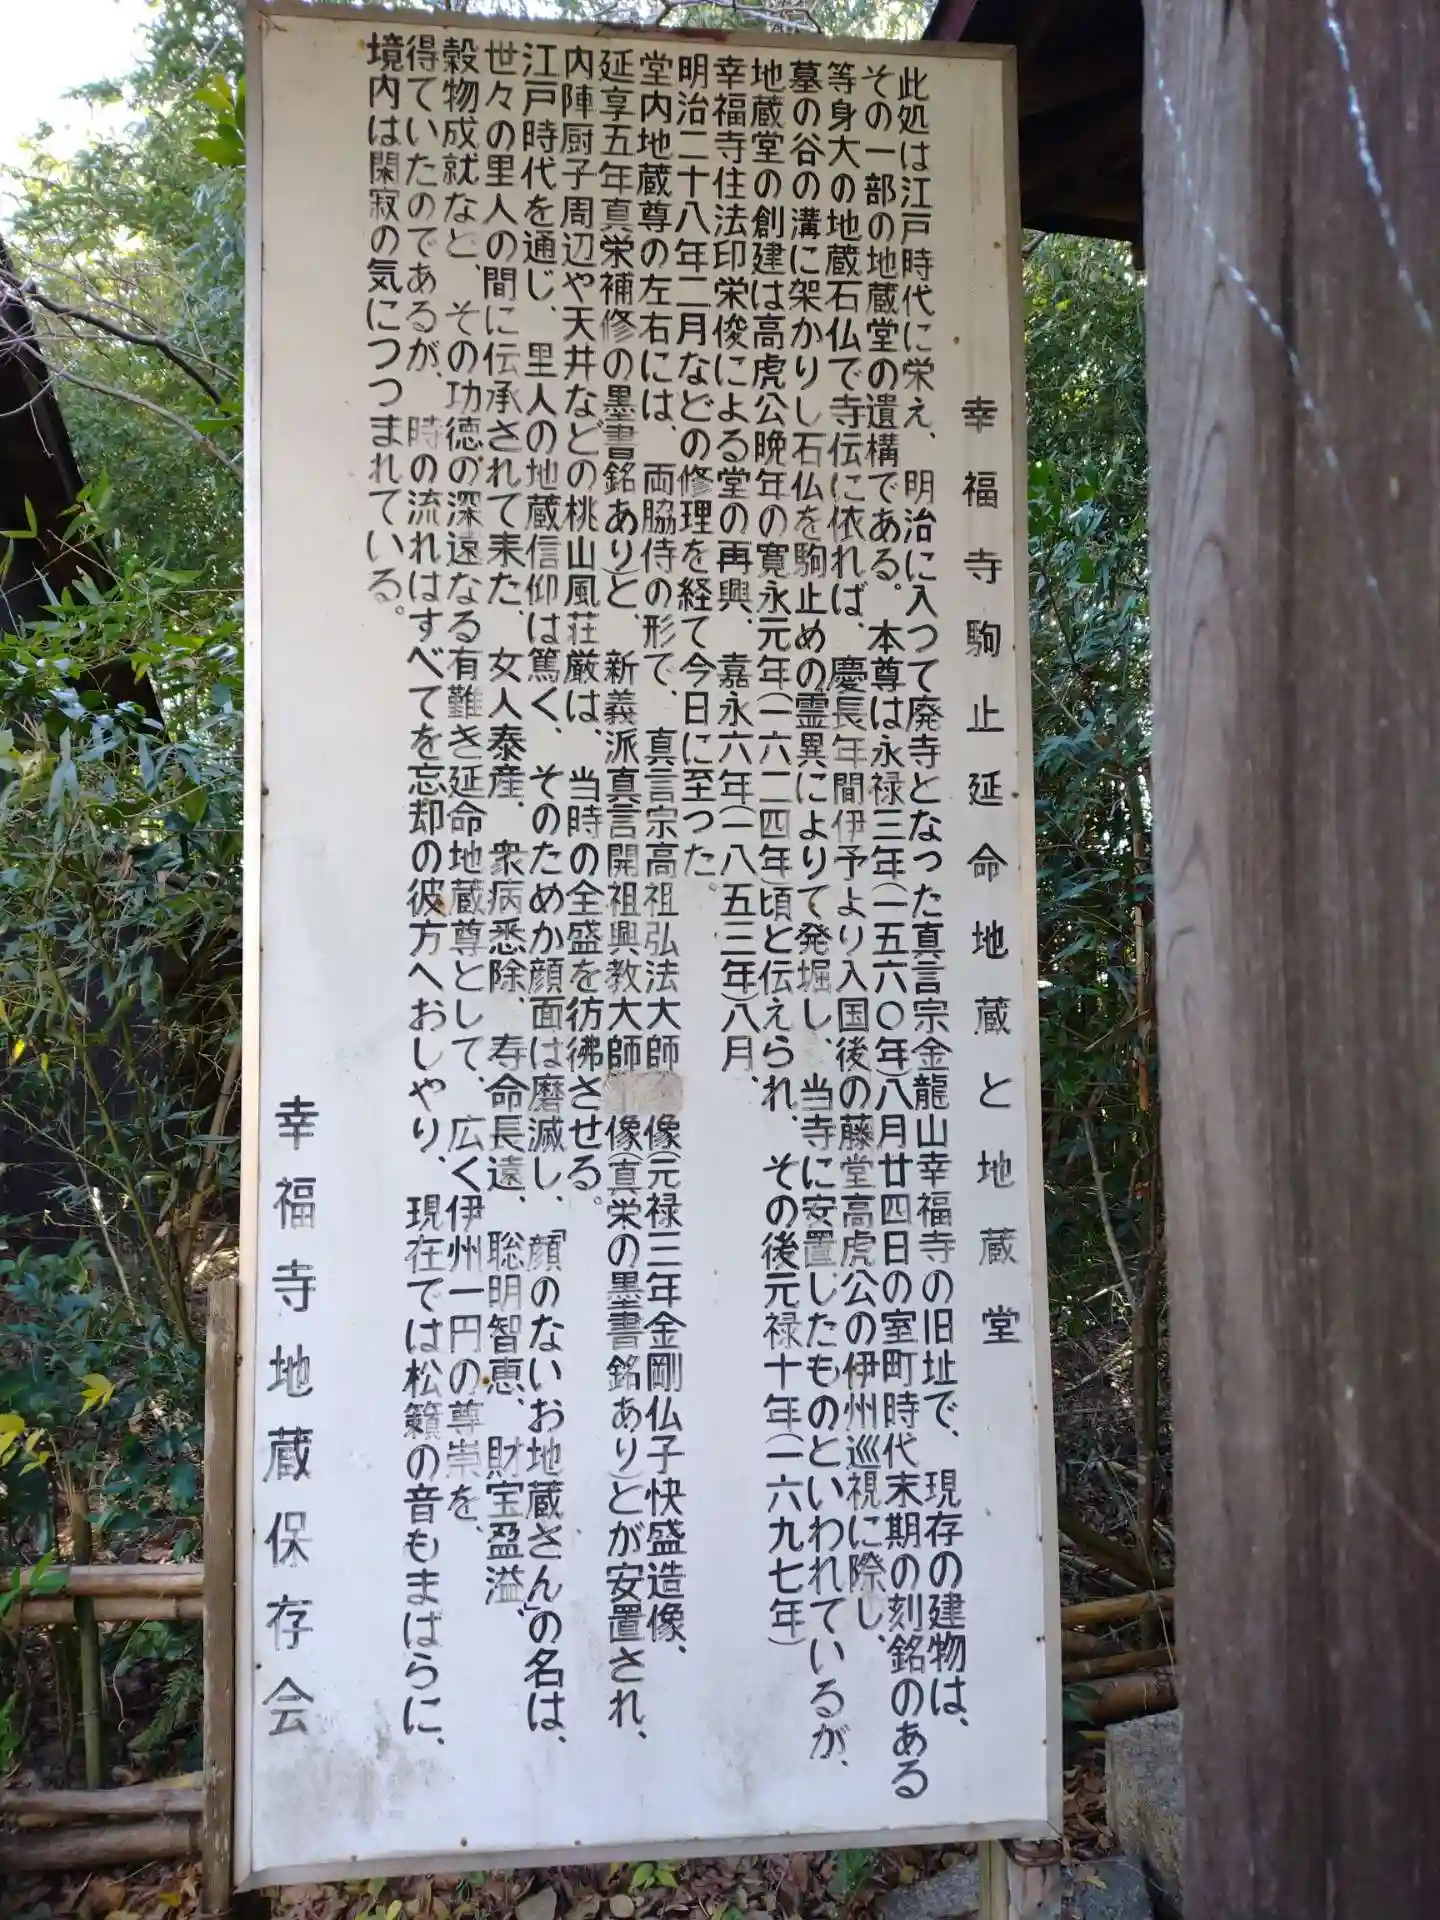 幸福寺駒止延命地蔵と地蔵堂
此処は江戸時代に栄え、明治に入つて廃寺となった真言宗金龍山幸福寺の旧址で、現存の建物は、
その一部の地蔵堂の遺構である。本尊は永禄三年(一五六〇年)八月廿四日の室町時代末期の刻銘のある
等身大の地蔵石仏で寺伝に依れば、慶長年間伊予より入国後の藤堂高虎公の伊州巡視に際し、
墓の谷の溝に架かりし石仏を駒止めの霊異によりて発堀し、当寺に安置したものといわれているが、
地蔵堂の創建は高虎公晩年の寛永元年(一六二四年)頃と伝えられ、その後元禄十年(一六九七年)
幸福寺住法印栄俊による堂の再興、嘉永六年(一八五三年)八月、
明治二十八年二月などの修理を経て今日に至つた。
堂内地蔵尊の左右には、両脇侍の形で、真言宗高祖弘法大師像(元禄三年金剛仏子快盛造像、
延享五年真栄補修の墨書銘あり)と、新義派真言開祖興教大師像(真栄の墨書銘あり)とが安置され、
内陣厨子周辺や天井などの桃山風荘厳は、当時の全盛を彷彿させる。
江戸時代を通じ、里人の地蔵信仰は篤く、そのためか顔面は磨滅し、「顔のないお地蔵さん」の名は、
世々の里人の間に伝承されて来た、女人泰産、衆病悉除、寿命長遠、聡明智恵、財宝盈溢、
穀物成就など、その功徳の深遠なる有難き延命地蔵尊として、広く伊州一円の尊崇を、
得ていたのであるが、時の流れはすべてを忘却の彼方へおしやり、現在では松籟の音もまばらに、
境内は閑寂の気につつまれている。
幸福寺地蔵保存会